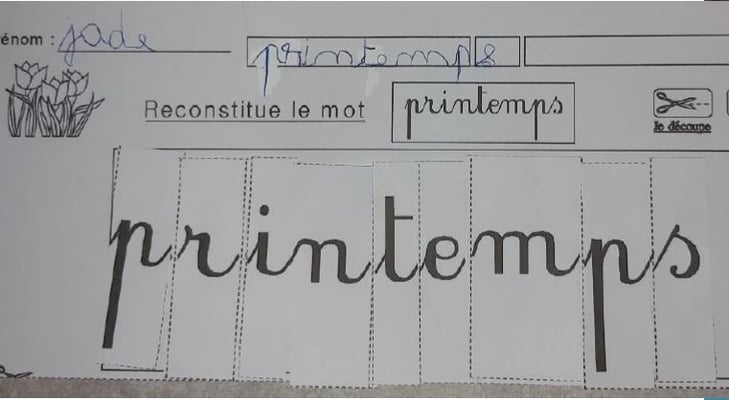 Prénom : jade
printemps
Reconstitue le mot printemps
Je découpe
printemps